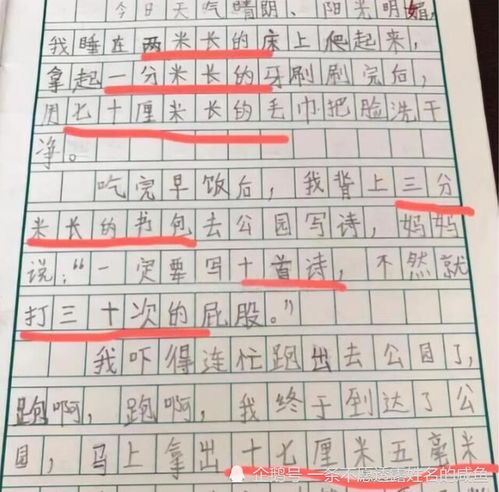 今日天气晴朗、阳光明媚,
我睡在两米长的床上爬起来,
拿起一分米长的牙刷刷完后,
用七十厘米长的毛巾把脸洗干
净。
吃完早饭后,我背上三分
米长的书包去公园写诗,妈妈
说:“一定要写十首诗,不然就
打三十次的屁股。”
我吓得连忙跑出去公园了,
跑啊,跑啊,我终于到达了公
园,马上拿出十七厘米五毫米
企鹅号 一条不愿透露姓名的咸鱼